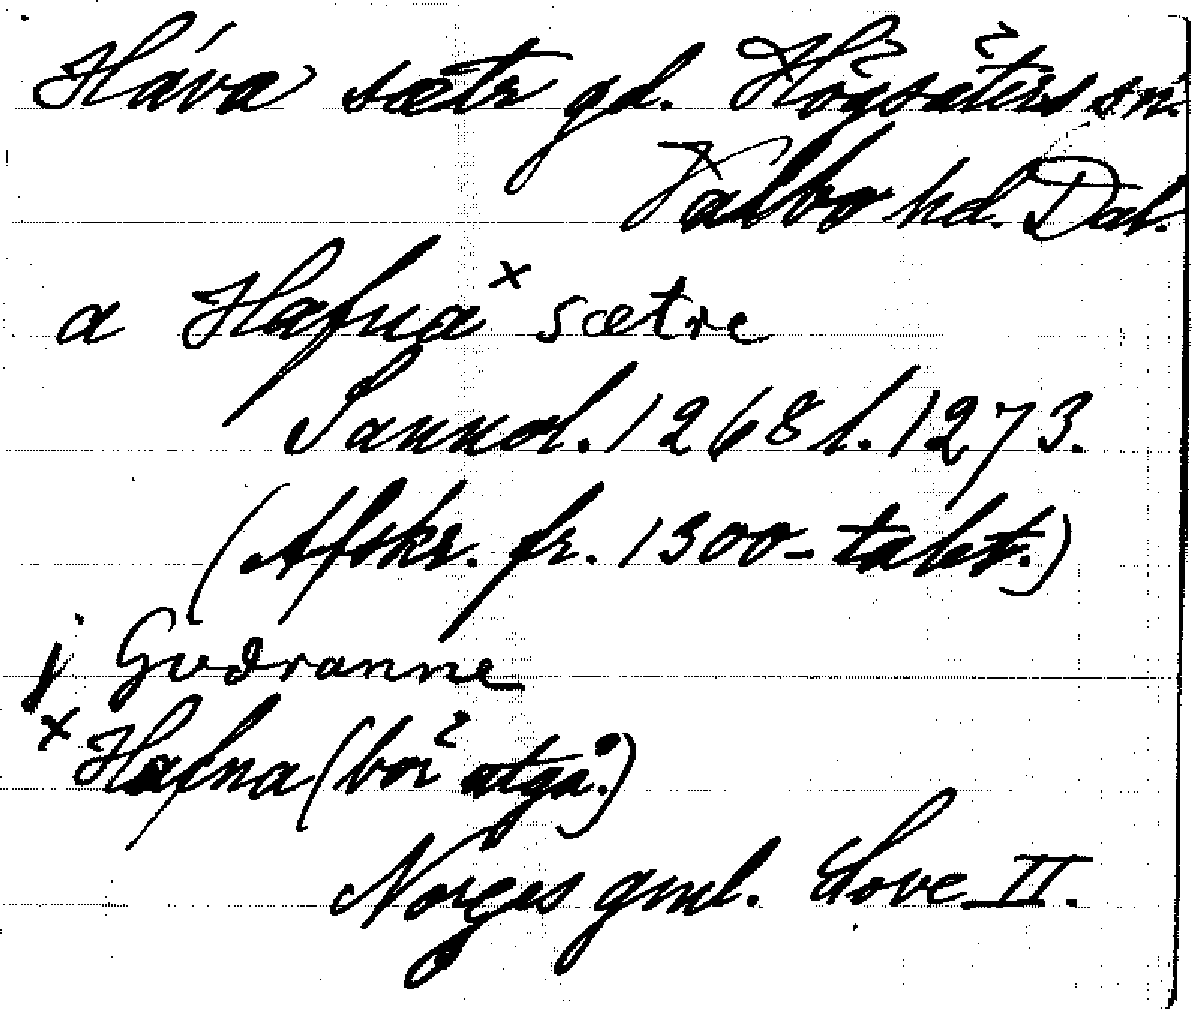 Háva sætr gd. Högsäters sn.
Valbo hd. Dal.
a Hafna× sætre
Sannol. 1268 l. 1273.
(Afskr. fr. 1300-talet.)
j Guðranne
× Hafna (bör utgå.)
Norges gml. Love II.